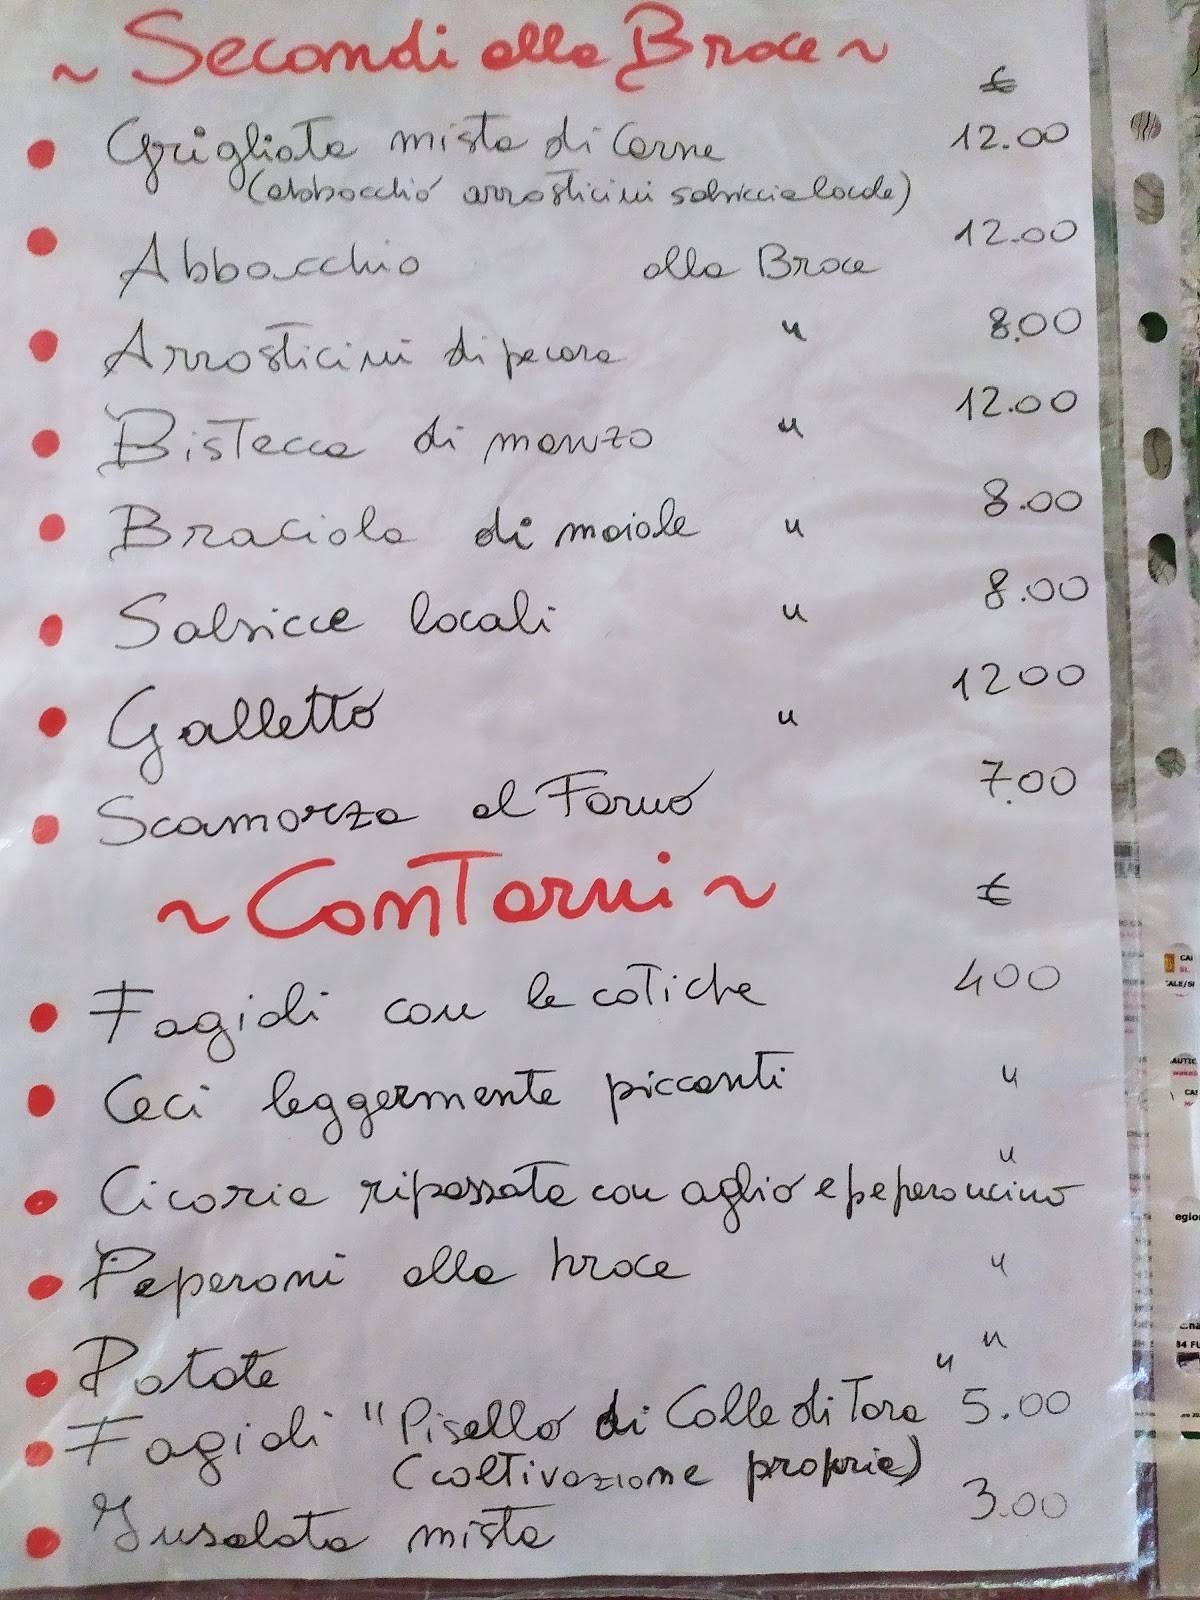 ~ Secondi alla Brace ~ €
Grigliata mista di Carne 12.00
(abbacchio arrosticini salsiccia locale)
Abbacchio alla Brace 12.00
Arrosticini di pecora " 8.00
Bistecca di manzo " 12.00
Braciola di maiale " 8.00
Salsicce locali " 8.00
Galletto " 12 00
Scamorza al Forno 7.00
~ Contorni ~ €
Fagioli con le cotiche 400
Ceci leggermente piccanti "
Cicoria ripassata con aglio e peperoncino "
Peperoni alla brace "
Patate "
Fagioli "Pisello di Colle di Tora" 5.00
(coltivazione propria)
Insalata mista 3.00